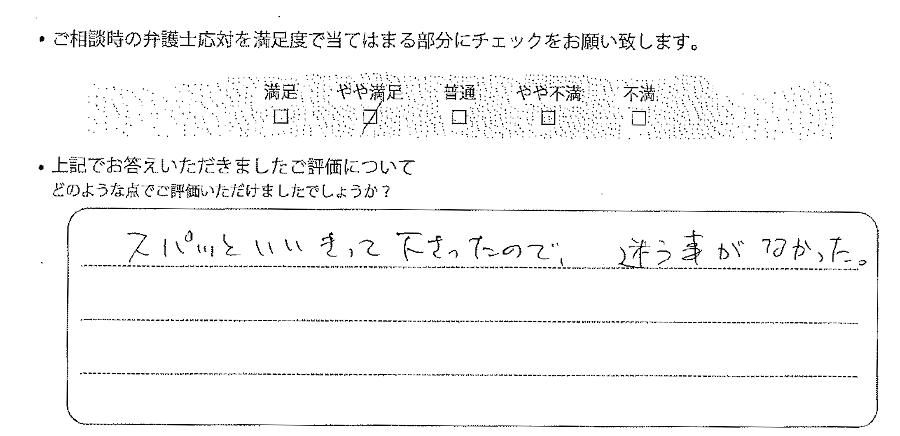 ・ご相談時の弁護士応対を満足度で当てはまる部分にチェックをお願い致します。
満足 やや満足 普通 やや不満 不満
□ ☑ □ □ □
・上記でお答えいただきましたご評価について
どのような点でご評価いただけましたでしょうか？
スパッといいきって下さったので、迷う事がなかった。